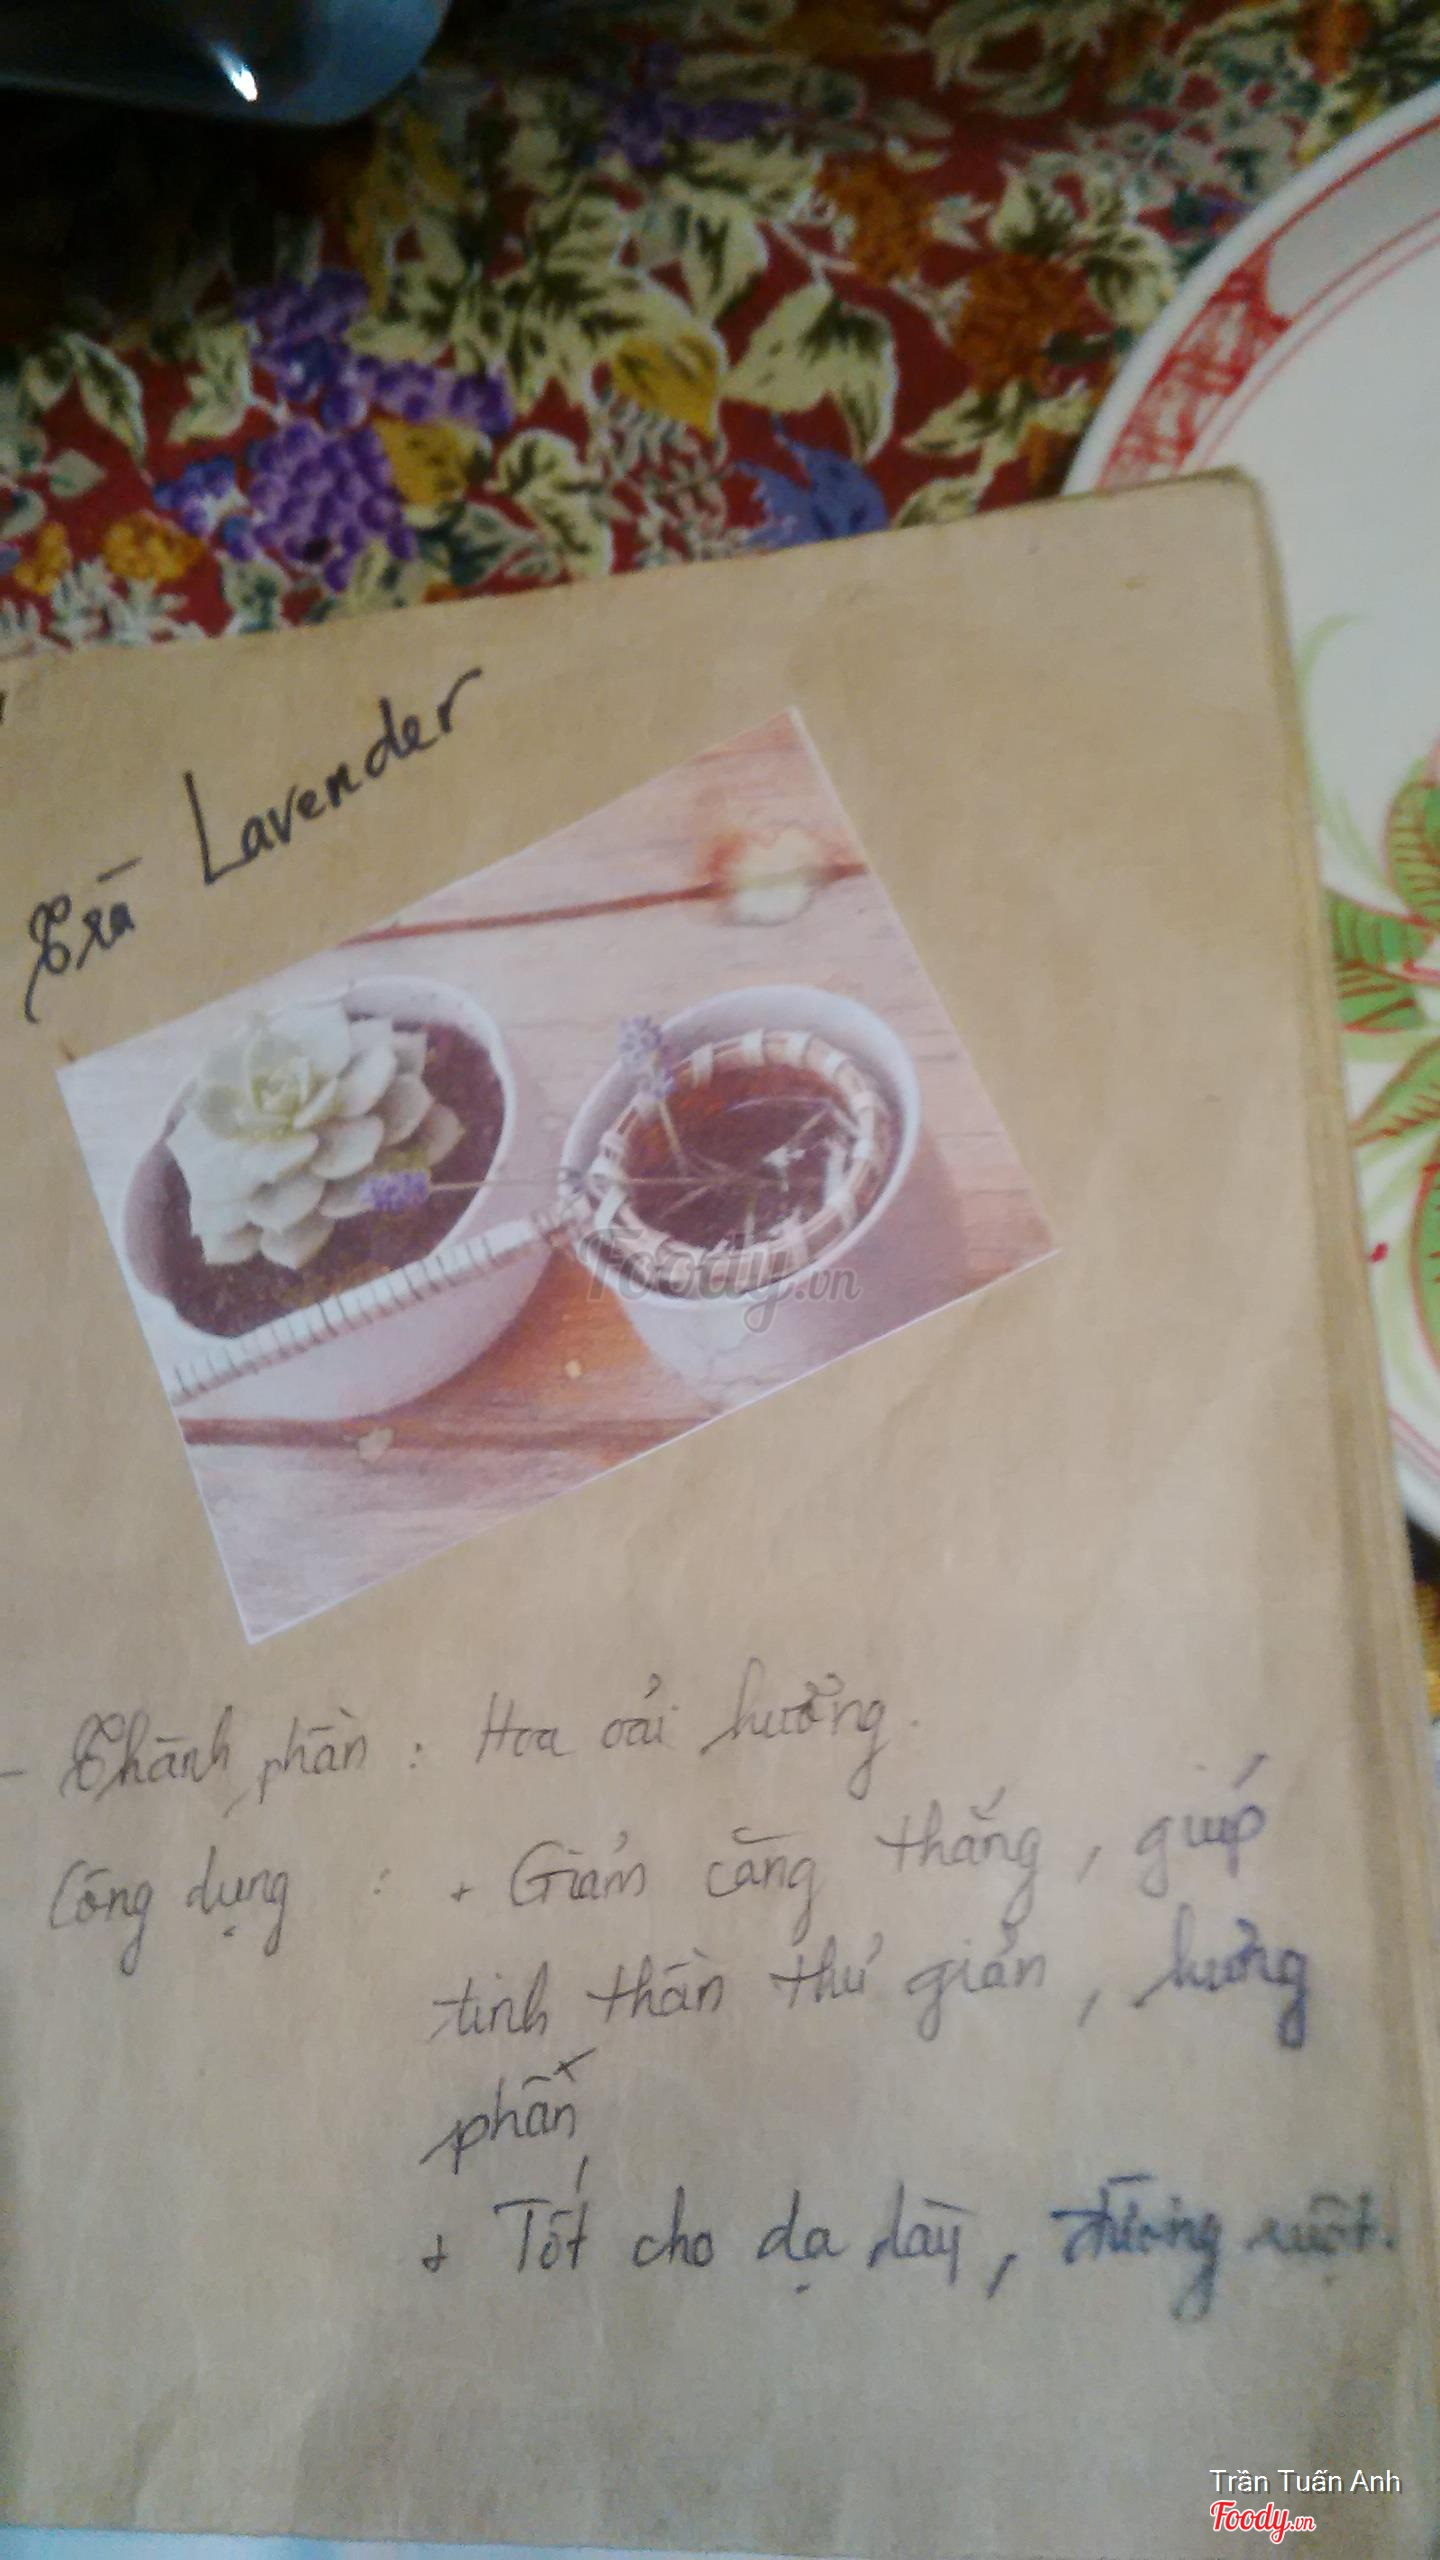 Trà Lavender
Foody.vn
- Thành phần : Hoa oải hương.
Công dụng : + Giảm căng thẳng, giúp
tinh thần thư giãn, hưng
phấn
+ Tốt cho dạ dày, đường ruột.
Trần Tuấn Anh
Foody.vn